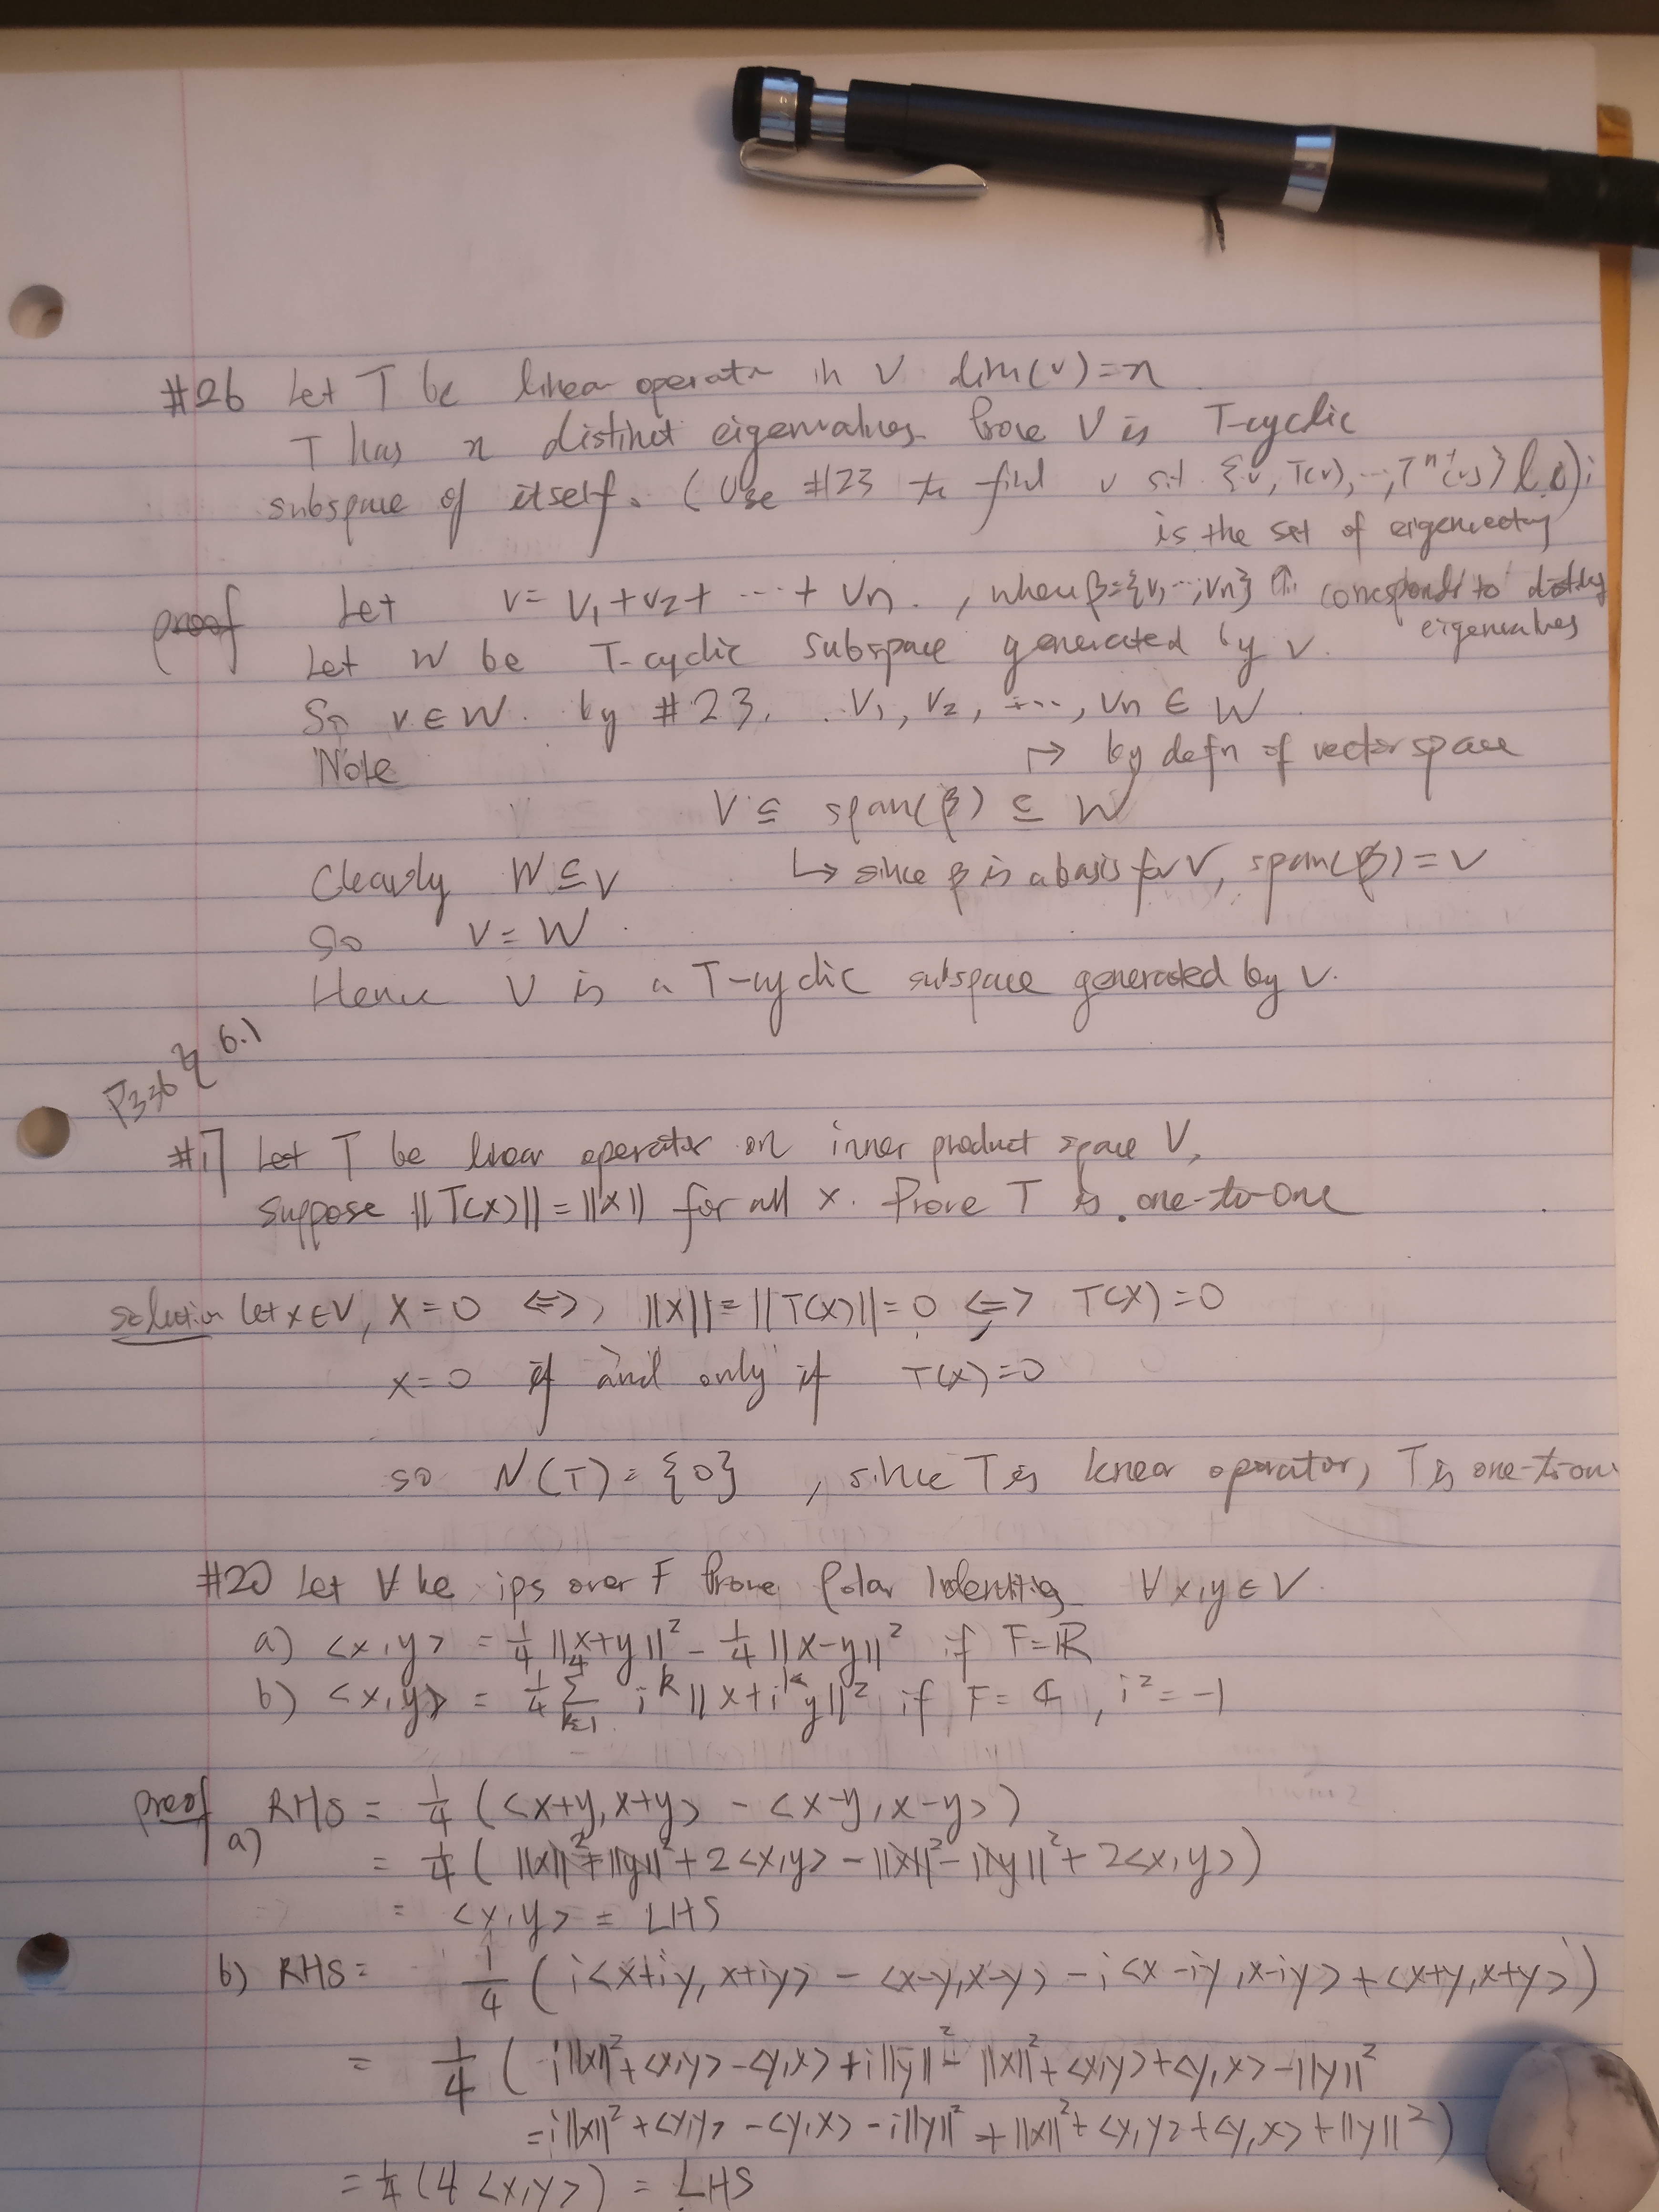 #26 Let T be linear operator in V dim(V)=n
T has n distinct eigenvalues. Prove V is T-cyclic
subspace of itself. (Use #23 to find v s.t {v, T(v), ..., Tⁿ⁻¹(v)} l.i)
is the set of eigenvectors
proof Let v = v₁+v₂+ ... + vn , where β={v₁,...,vn} ↑ corresponds to distinct
eigenvalues
Let W be T-cyclic subspace generated by v.
So v ∈ W. by #23, v₁, v₂, ..., vn ∈ W
Note ↦ by defn of vector space
V ⊆ span(β) ⊆ W
Clearly W ⊆ V ↳ since β is a basis for V, span(β) = V
So V = W
Hence V is a T-cyclic subspace generated by v.
P336 § 6.1
#17 Let T be linear operator on inner product space V,
suppose ||T(x)|| = ||x|| for all x. Prove T is one-to-one
solution Let x∈V, x = 0 <=> ||x|| = ||T(x)|| = 0 <=> T(x) = 0
x=0 if and only if T(x)=0
so N(T) = {0} , since T is linear operator, T is one-to-one
#20 Let V be ips over F Prove Polar Identity ∀ x,y ∈ V
a) <x,y> = 1/4 ||x+y||² - 1/4 ||x-y||² if F=ℝ
b) <x,y> = 1/4 Σ⁴ₖ₌₁ iᵏ ||x+iᵏy||² if F=ℂ, i² = -1
proof a) RHS = 1/4 (<x+y, x+y> - <x-y, x-y>)
= 1/4 ( ||x||²+||y||²+2<x,y> - ||x||² - ||y||² + 2<x,y>)
= <x,y> = LHS
b) RHS = 1/4 ( i<x+iy, x+iy> - <x-y, x-y> - i<x-iy, x-iy> + <x+y, x+y>)
= 1/4 ( i||x||²+<x,y>-<y,x>+i||y||² - ||x||²+<x,y>+<y,x>-||y||²
-i||x||²+<x,y>-<y,x>-i||y||²+||x||²+<x,y>+<y,x>+||y||²)
= 1/4 (4<x,y>) = LHS